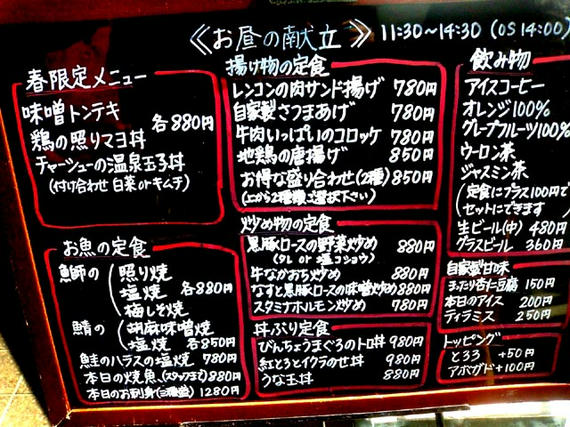 ≪お昼の献立≫ 11:30~14:30 (OS 14:00)
春限定メニュー
味噌トンテキ
鶏の照りマヨ丼 各880円
チャーシューの温泉玉子丼
(付け合わせ 白菜 or キムチ)
お魚の定食
鰤の 照り焼
塩焼 各880円
梅しそ焼
鯖の 胡麻味噌焼
塩焼 各850円
鮭のハラスの塩焼 780円
本日の焼魚(スタッフまで) 880円
本日のお刺身(三種盛) 1280円
揚げ物の定食
レンコンの肉サンド揚げ 780円
自家製さつまあげ 780円
牛肉いっぱいのコロッケ 780円
地鶏の唐揚げ 850円
お得な盛り合わせ(2種) 850円
(上から2種類ご選択下さい)
炒め物の定食
黒豚ロースの野菜炒め 880円
(タレ or 塩コショウ)
牛なかおち炒め 880円
なすと黒豚ロースの味噌炒め 880円
スタミナホルモン炒め 780円
丼ぶり定食
びんちょうまぐろのトロ丼 980円
紅とろとイクラのせ丼 980円
うな玉丼 880円
飲み物
アイスコーヒー
オレンジ100%
グレープフルーツ100%
ウーロン茶
ジャスミン茶
(定食にプラス100円で
セットにできます)
生ビール(中) 480円
グラスビール 360円
自家製甘味
まったり杏仁豆腐 150円
本日のアイス 200円
ティラミス 250円
トッピング
とろろ +50円
アボガド +100円